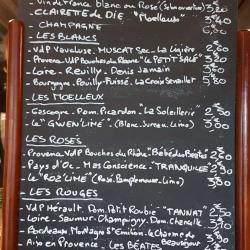 Vin de France blanc ou Rosé (Selon arrivage) 3,20
- CLAIRETTE de DIE "Moelleux" 3,40
- CHAMPAGNE
LES BLANCS
- VDP Vaucluse MUSCAT Sec - La Ligière
- Provence VDP Bouches du Rhône "Le PETIT SALÉ"
- Loire - Reuilly - Denis Jamain
- Bourgogne - Pouilly Fuissé - La Croix
LES MOELLEUX
- Gascogne - Dom. Picardon "La Soleillerie"
- Le "GWEN'LIME" (Blanc, Sureau, Limo)
LES ROSÉS
- Provence VDP Bouches du Rhône "Bébé des Béates"
- Pays d'Oc - Mas Conscience - TRANQUILLE
- Le "ROZ'LIME" (Rosé, Pamplemousse, Limo)
LES ROUGES
- VDP Hérault, Dom. Petit Roubié "TANNAT" 2,50
- Loire - Saumur Champigny, Dom.
- Bordeaux Montagne St Emilion
- Aix en Provence - Les BÉATES